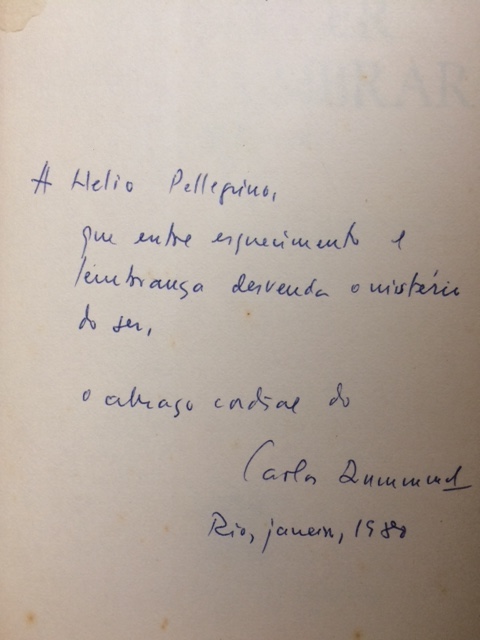 A Helio Pellegrino,
que entre esquecimento e
lembrança desvenda o mistério
do ser,
o abraço cordial do
Carlos Drummond
Rio, janeiro, 1980